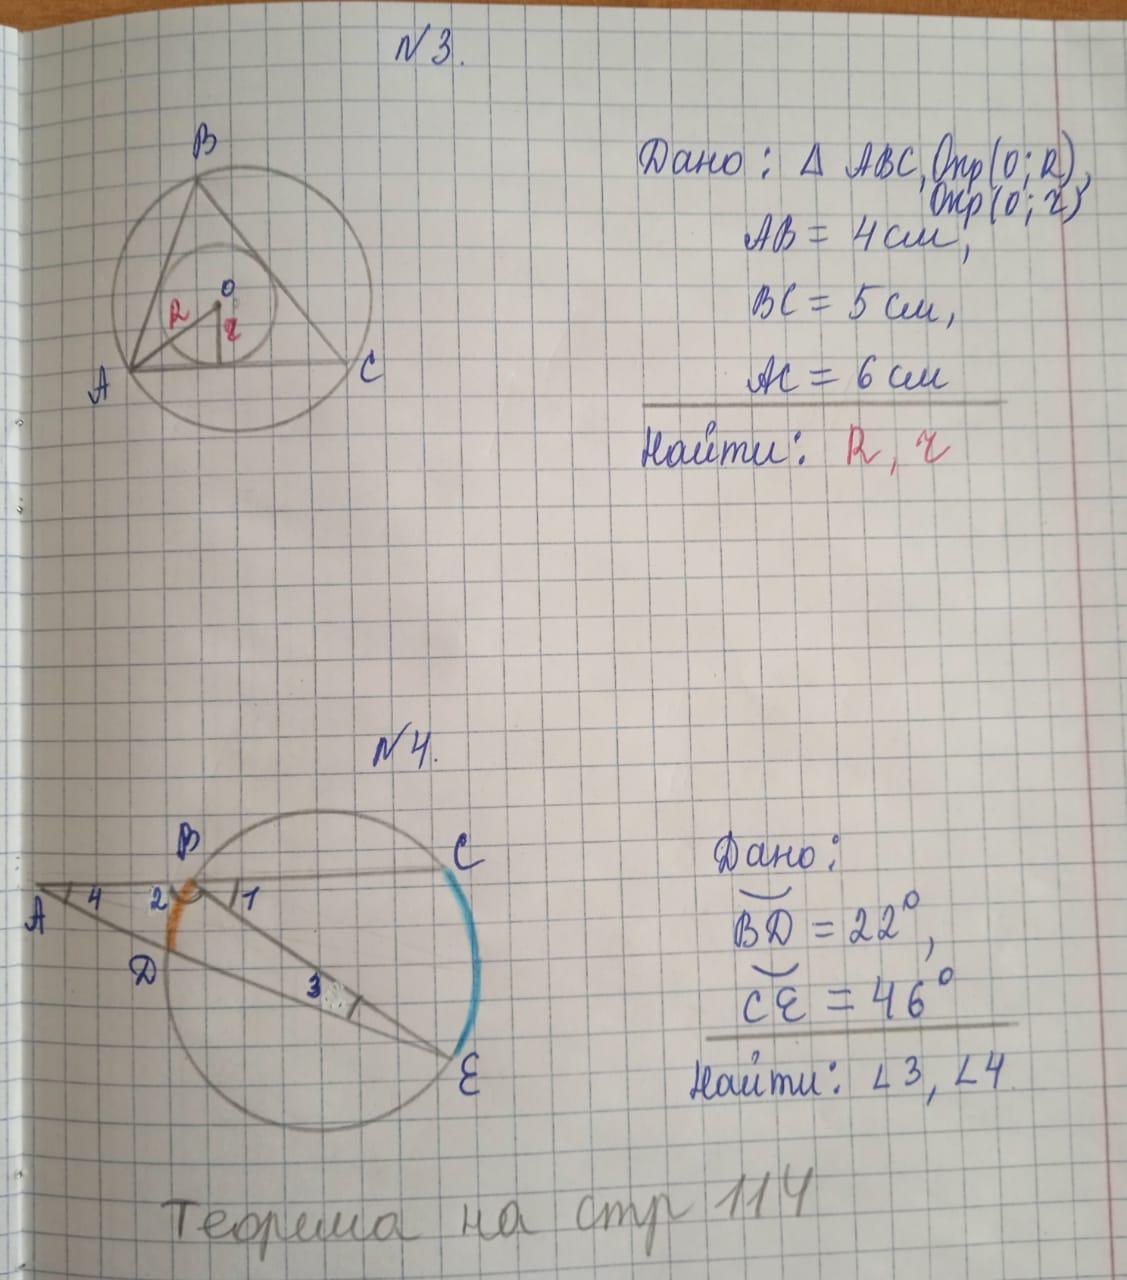 N3.
B
O
R
r
A
C
Дано: Δ ABC, Окр(O; R),
Окр(O; r)
AB = 4 см,
BC = 5 см,
AC = 6 см
Найти: R, r
N4.
B
C
A
4
2
1
D
3
E
Дано:
BD = 22°,
CE = 46°
Найти: ∠3, ∠4
Теорема на стр 114